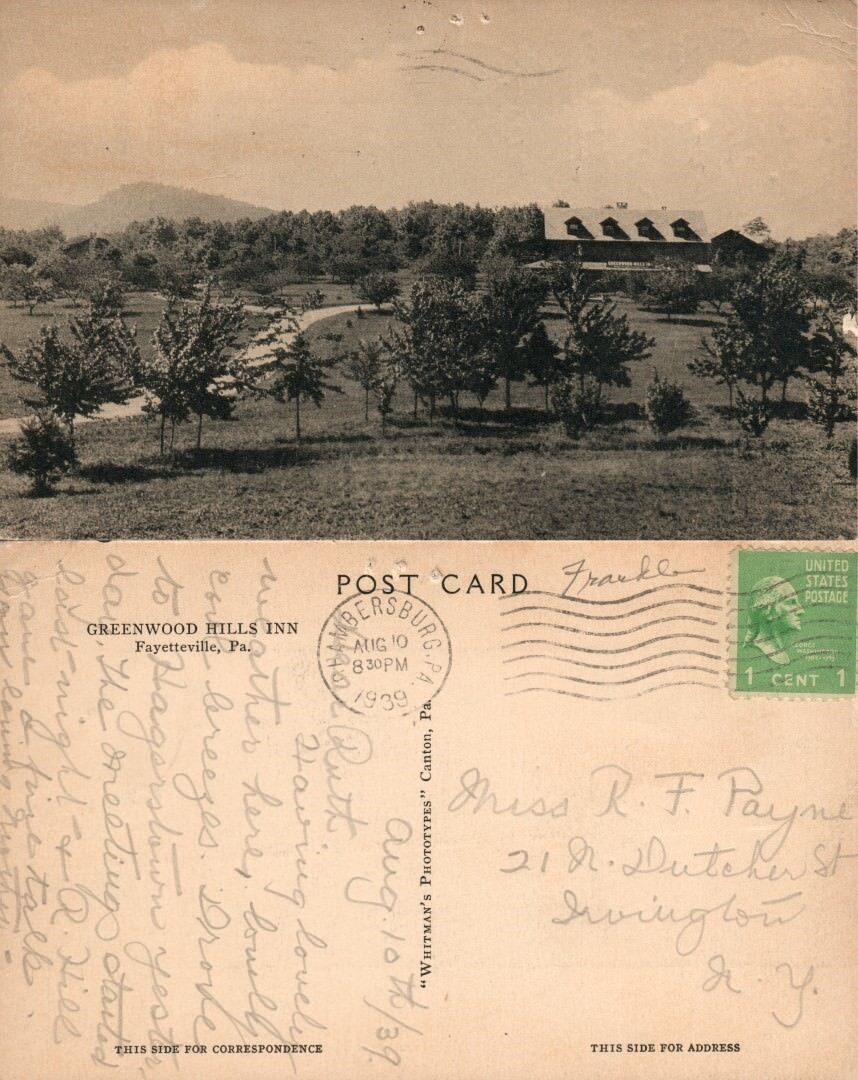 GREENWOOD HILLS INN
POST CARD
Frankl
UNITED
STATES
POSTAGE
GEORGE
WASHINGTON
1 CENT 1
GREENWOOD HILLS INN
Fayetteville, Pa.
CHAMBERSBURG. PA.
AUG 10
830 PM
1939
"WHITMAN'S PHOTOTYPES" Canton, Pa.
Aug. 10th/39
Dear Ruth
Having lovely
weather here, lovely
cool breezes. Drove
to Hagerstown yester
day, the meeting started
last night & R. Hill
gave a fine talk.
Miss R. F. Payne
21 N. Dutcher St
Irvington
N. Y.
THIS SIDE FOR CORRESPONDENCE
THIS SIDE FOR ADDRESS